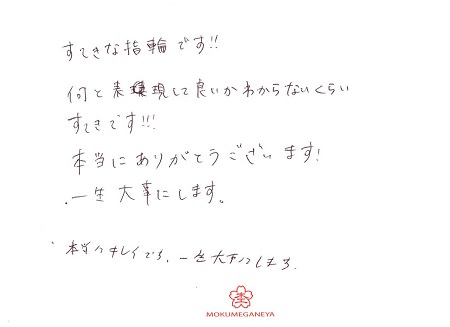 すてきな指輪です!!
何と表現して良いかわからないくらい
すてきです!!!
本当にありがとうございます!
一生大事にします。
本当にキレイです。一生大事にします。
MOKUMEGANEYA